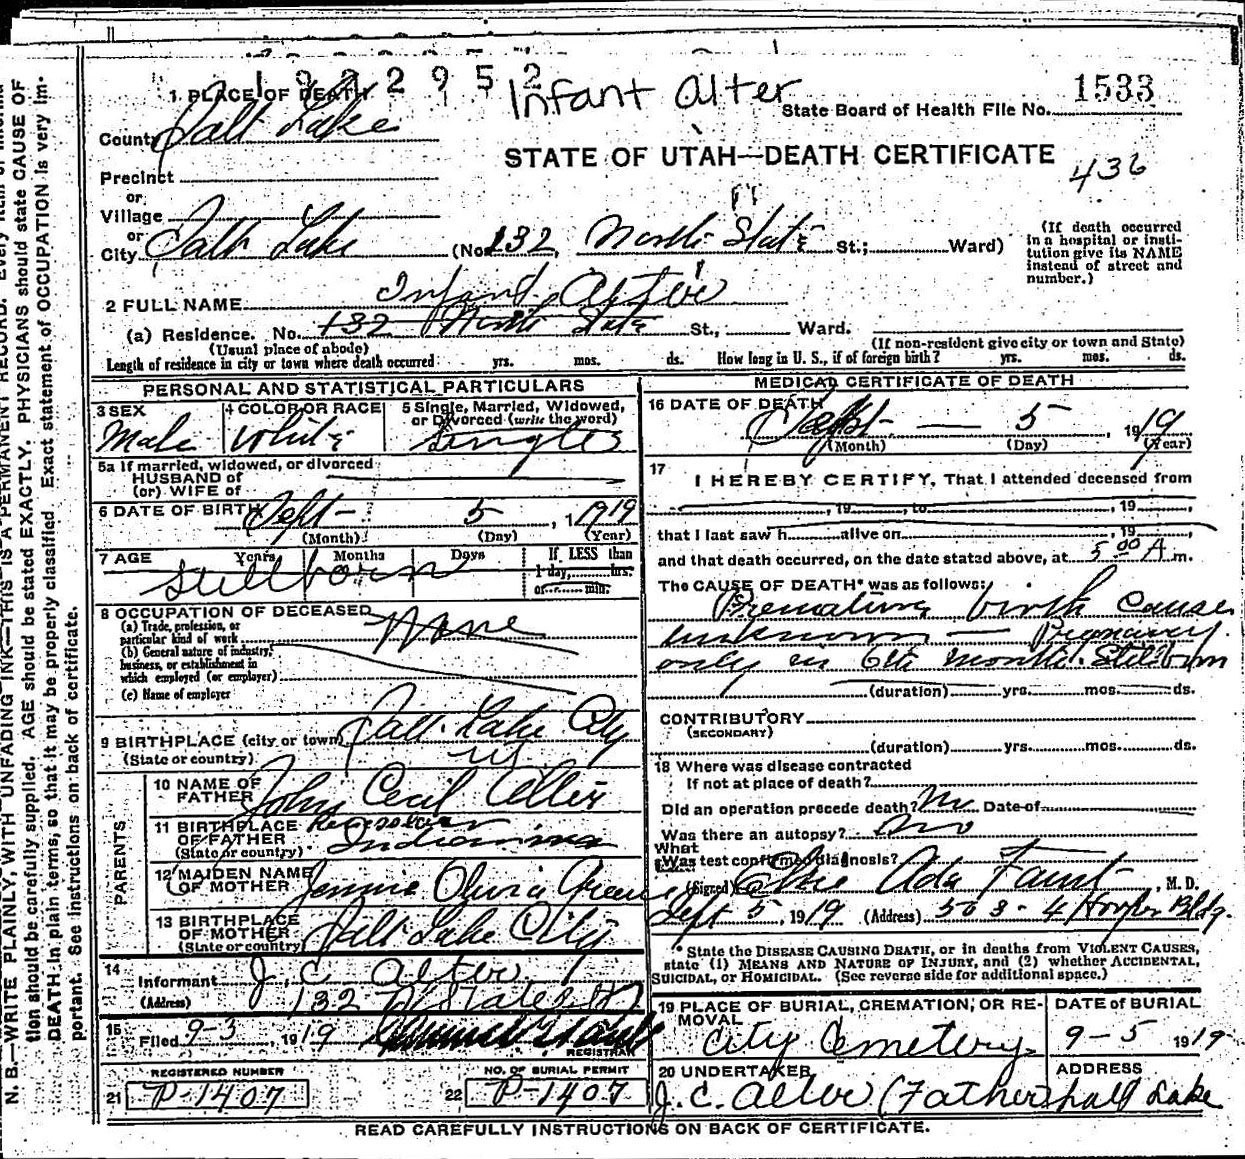 1922952
Infant Alter
1 PLACE OF DEATH
State Board of Health File No. 1533
County Salt Lake
STATE OF UTAH—DEATH CERTIFICATE
436
Precinct
or
Village
or
City Salt Lake (No. 132, North State St.; Ward)
(If death occurred in a hospital or insti-
tution give its NAME
instead of street and
number.)
2 FULL NAME Infant Alter
(a) Residence. No. 132 North State St., Ward.
(Usual place of abode) (If non-resident give city or town and State)
Length of residence in city or town where death occurred yrs. mos. ds. How long in U. S., if of foreign birth? yrs. mos. ds.
PERSONAL AND STATISTICAL PARTICULARS
3 SEX 4 COLOR OR RACE 5 Single, Married, Widowed,
or Divorced (write the word)
Male White Single
5a If married, widowed, or divorced
HUSBAND of
(or) WIFE of
6 DATE OF BIRTH Sept- 5, 1919
(Month) (Day) (Year)
7 AGE Years Months Days If LESS than
1 day, hrs.
or min.
Stillborn
8 OCCUPATION OF DECEASED None
(a) Trade, profession, or
particular kind of work
(b) General nature of industry,
business, or establishment in
which employed (or employer)
(c) Name of employer
9 BIRTHPLACE (city or town) Salt Lake City
(State or country) Ut
PARENTS
10 NAME OF
FATHER John Cecil Alter
11 BIRTHPLACE
OF FATHER Indiana
(State or country)
12 MAIDEN NAME
OF MOTHER Jennie Olivia Greene
13 BIRTHPLACE
OF MOTHER Salt Lake City
(State or country)
14
Informant J. C. Alter
(Address) 132 N State St
15
Filed 9-3, 1919
REGISTRAR
REGISTERED NUMBER
21 P-1407
NO. OF BURIAL PERMIT
22 P-1407
MEDICAL CERTIFICATE OF DEATH
16 DATE OF DEATH
Sept- — 5, 1919
(Month) (Day) (Year)
17
I HEREBY CERTIFY, That I attended deceased from
, 19 , to , 19 ,
that I last saw h alive on , 19 ,
and that death occurred, on the date stated above, at 5 00 A m.
The CAUSE OF DEATH* was as follows:
Premature birth cause
unknown — Pregnancy
only in 6th month. Stillborn
(duration) yrs. mos. ds.
CONTRIBUTORY
(SECONDARY)
(duration) yrs. mos. ds.
18 Where was disease contracted
If not at place of death?
Did an operation precede death? No Date of
Was there an autopsy? No
What
Was test confirmed diagnosis?
(Signed) Elsie Ada Faust, M. D.
Sept 5, 1919 (Address) 503-4 Hooper Bldg.
* State the DISEASE CAUSING DEATH, or in deaths from VIOLENT CAUSES,
state (1) MEANS AND NATURE OF INJURY, and (2) whether ACCIDENTAL,
SUICIDAL, or HOMICIDAL. (See reverse side for additional space.)
19 PLACE OF BURIAL, CREMATION, OR RE-
MOVAL
City Cemetery
DATE OF BURIAL
9-5 1919
20 UNDERTAKER
J. C. Alter (Father)
ADDRESS
Salt Lake
READ CAREFULLY INSTRUCTIONS ON BACK OF CERTIFICATE.
N. B.—WRITE PLAINLY WITH UNFADING INK—THIS IS A PERMANENT RECORD. Every item of informa
tion should be carefully supplied. AGE should be stated EXACTLY. PHYSICIANS should state CAUSE OF
DEATH in plain terms, so that it may be properly classified. Exact statement of OCCUPATION is very im-
portant. See instructions on back of certificate.